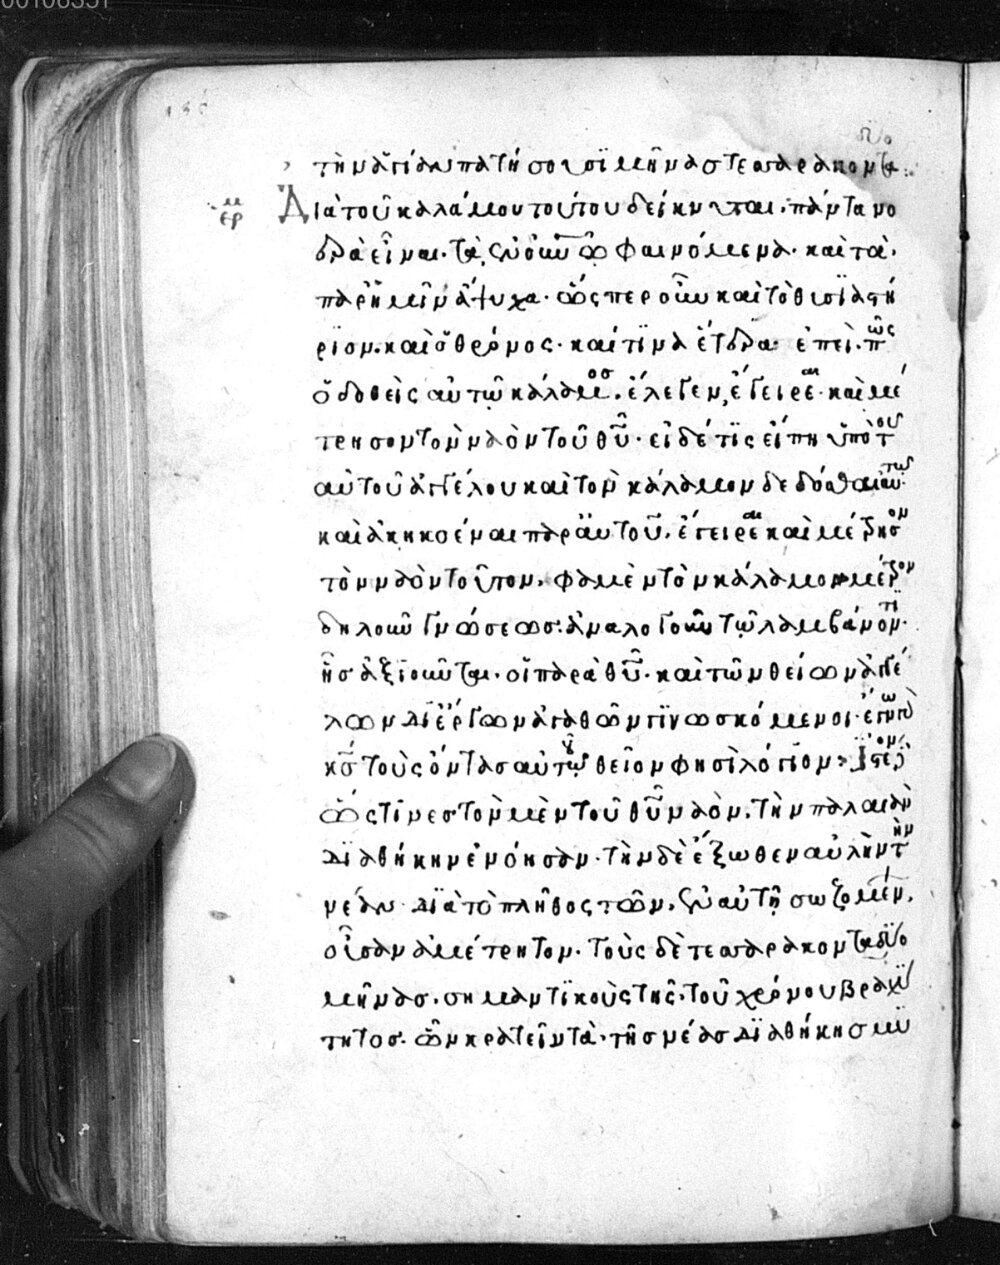 00108351
136
δύο
τὴν ἁγίαν πατήσουσι μῆνας τεσσαράκοντα
ερ
μ
Διὰ τοῦ καλάμου τούτου δείκνυται πάντα νο
ερὰ εἶναι τὰ ἐν οὐνῶ φαινόμενα καὶ τὰ
παρ ἡμῖν ἄψυχα ὥσπερ οὖν καὶ τὸ θυσιαστή
ριον καὶ ὁ θρόνος καί τινα ἕτερα ἐπεὶ πῶς
ὁ δοθεὶς αὐτῶ κάλαμος ἔλεγεν ἔγειραι καὶ μέ
τρησον τὸν ναὸν τοῦ θυ εἰ δέ τις εἴπη ὑπὸ τοῦ
αὐτοῦ ἀγγέλου καὶ τὸν κάλαμον δεδόσθαι αὐτῶ
καὶ ἀκηκοέναι παρ αὐτοῦ ἔγειραι καὶ μέτρησον
τὸν ναὸν τοῦτον φαμὲν τὸν κάλαμον μέτρον
δηλοῦν γνώσεως ἀναλογοῦν τῶ λαμβάνοντι
ἧς ἀξιοῦται οἱ παρὰ θυ καὶ τῶν θείων ἀγγέ
λων δι ἔργων ἀγαθῶν γινωσκόμενοι ἔγνω
κς τοὺς ὄντας αὐτοῦ θεῖον φησὶ λόγιον ἕτερον
ὥς τινες τὸν μὲν τοῦ θυ ναὸν τὴν παλαιὰν
διαθήκην ἐνόησαν τὴν δὲ ἔξωθεν αὐλὴν τὴν
νέαν διὰ τὸ πλῆθος τῶν ἐν αὐτῆ σωζομέν
οὖσαν ἀμέτρητον τοὺς δὲ τεσσαράκοντα δύο
μῆνας σημαντικοὺς τῆς τοῦ χρόνου βραχύ
τητος ὧν κρατεῖν τὰ τῆς νέας διαθήκης μυ